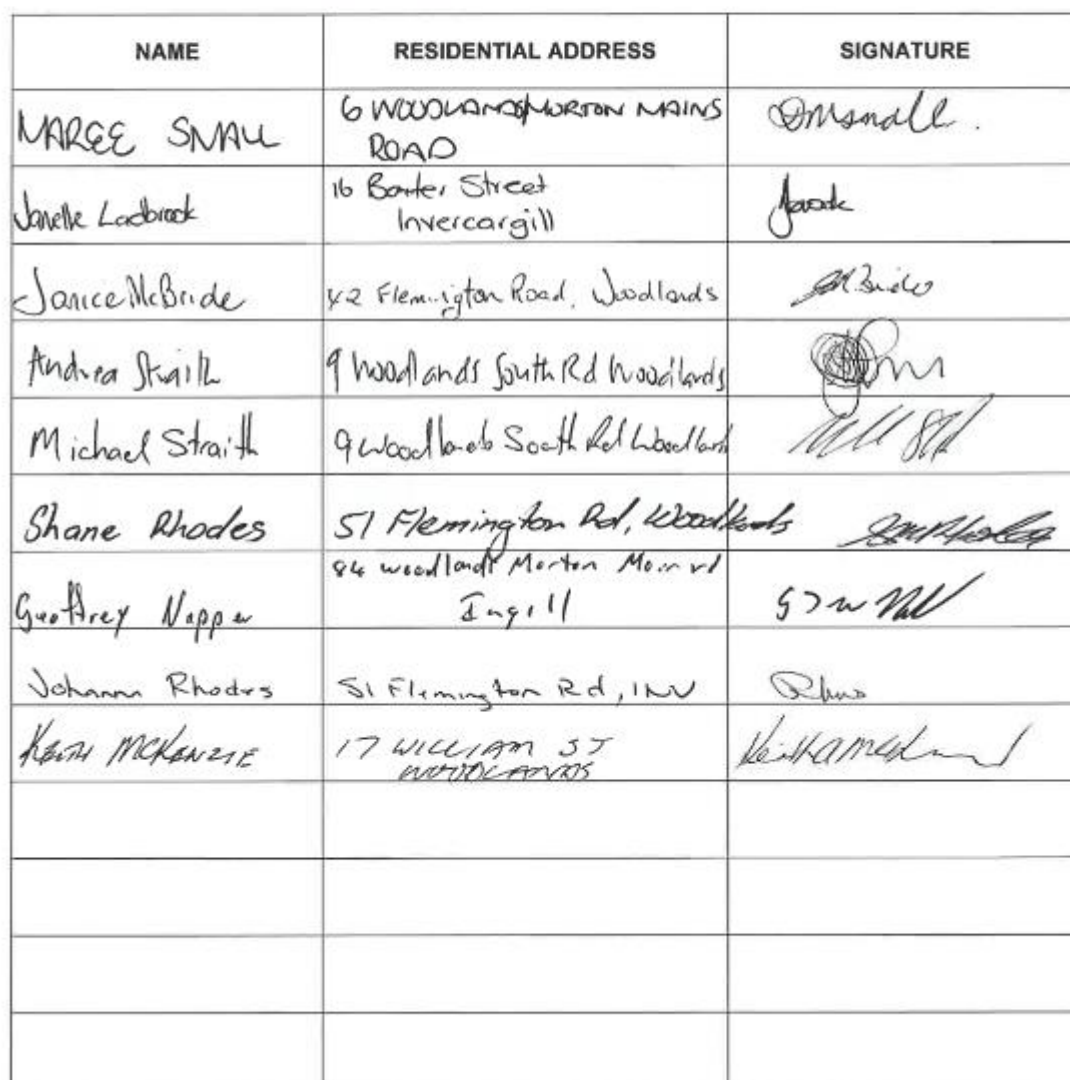 NAME RESIDENTIAL ADDRESS SIGNATURE
MAREE SMALL 6 WOODLANDS/MORTON MAINS DMSmall.
ROAD
Janelle Ladbrook 16 Baxter Street
Invercargill
Janice McBride 42 Flemington Road, Woodlands JMcBride
Andrea Straith 9 Woodlands South Rd Woodlands
Michael Straith 9 Woodlands South Rd Woodlands
Shane Rhodes 51 Flemington Rd, Woodlands
84 woodlands Morton Main rd
Geoffrey Napper
Ingill
Johanna Rhodes 51 Flemington Rd, INV
KEITH MCKENZIE 17 WILLIAM ST
WOODLANDS